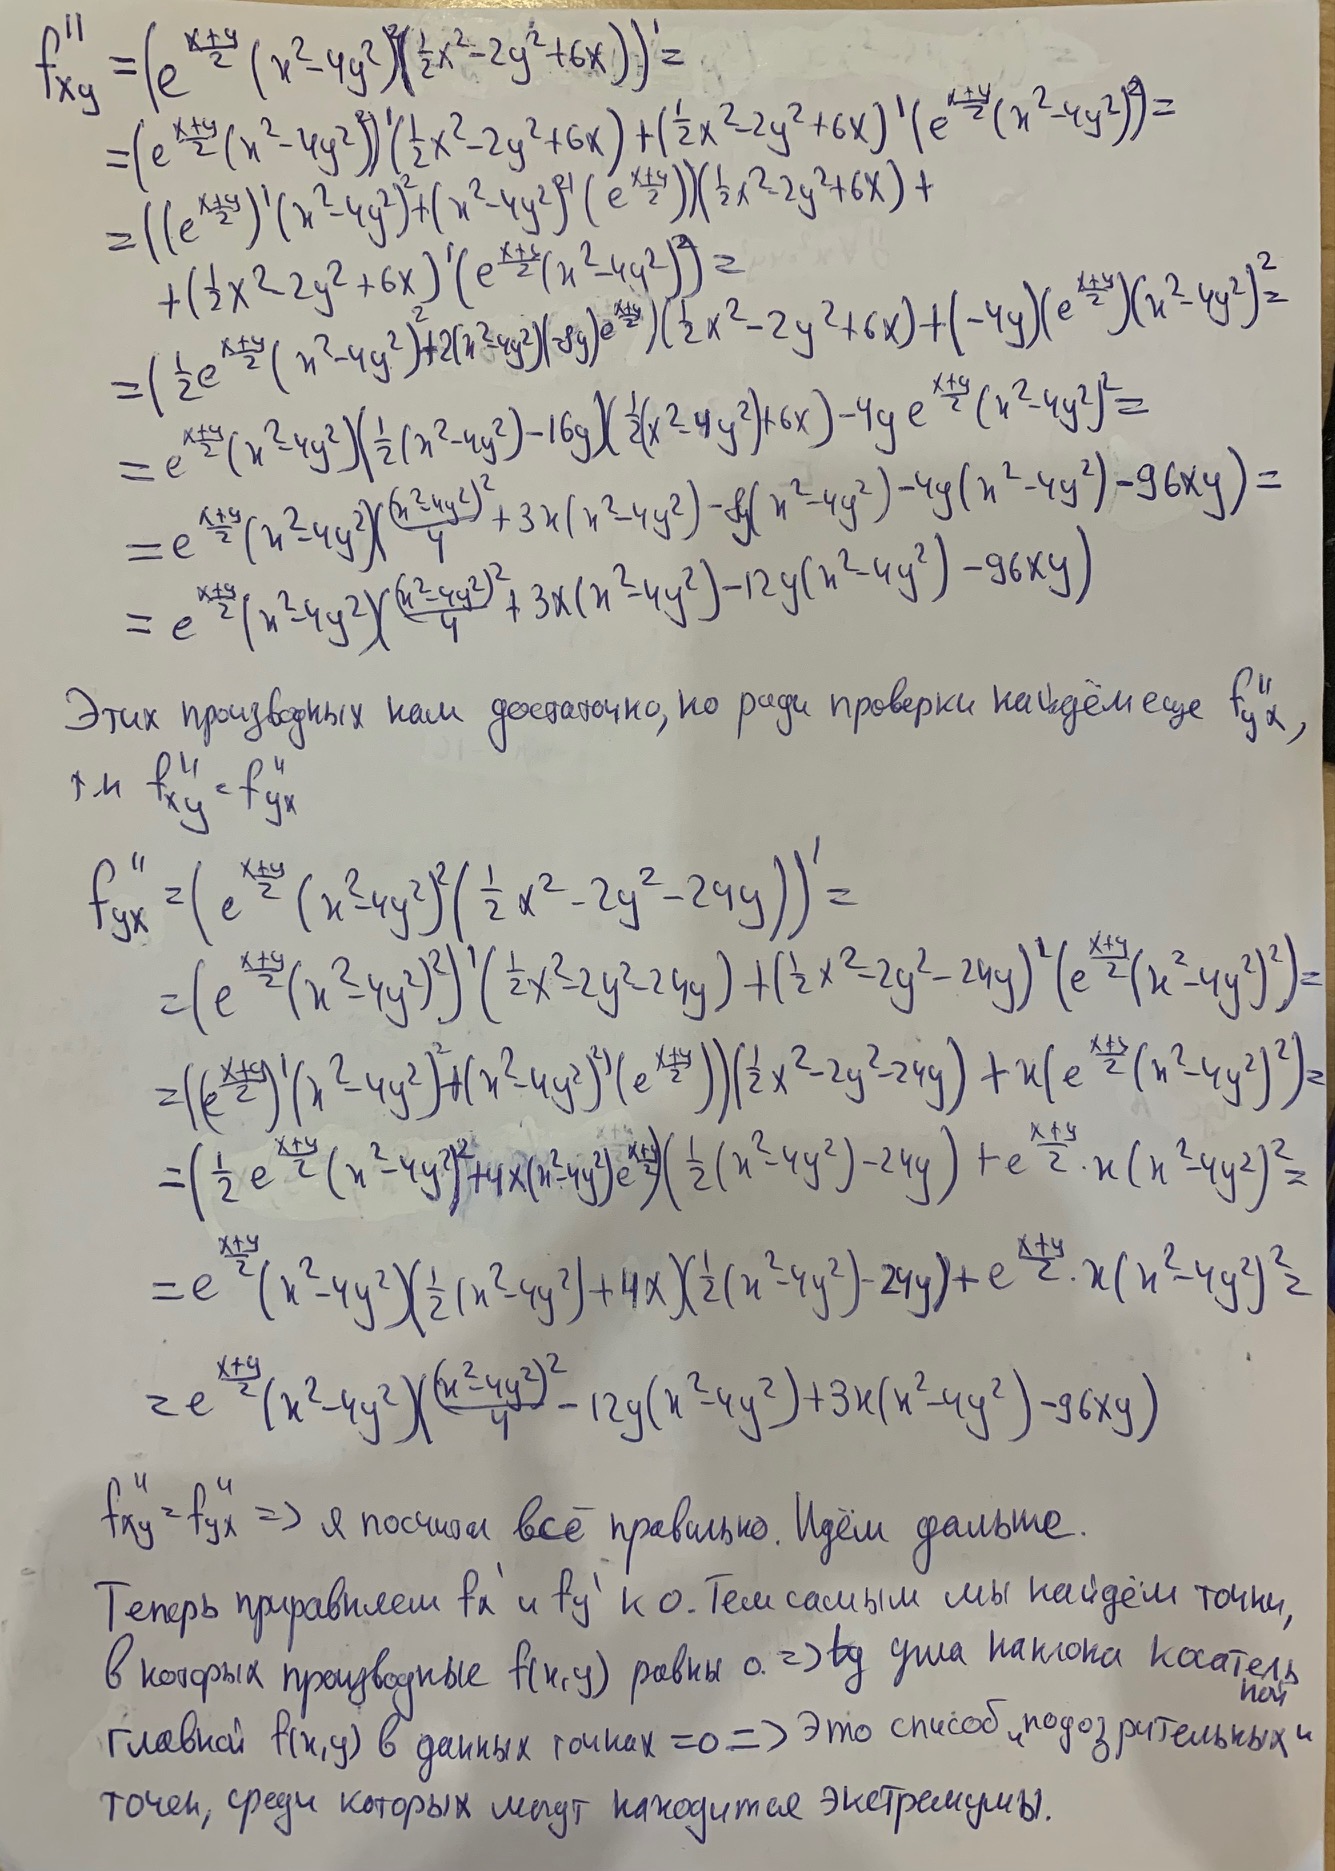 f''xy = (e^((x+y)/2) (x²-4y²)²(½x²-2y²+6x))' =
= (e^((x+y)/2) (x²-4y²)²)' (½x²-2y²+6x) + (½x²-2y²+6x)' (e^((x+y)/2) (x²-4y²)²) =
= ((e^((x+y)/2))' (x²-4y²)² + (x²-4y²)²' (e^((x+y)/2))) (½x²-2y²+6x) +
+ (½x²-2y²+6x)' (e^((x+y)/2) (x²-4y²)²) =
= (½e^((x+y)/2) (x²-4y²)² + 2(x²-4y²)(-8y)e^((x+y)/2)) (½x²-2y²+6x) + (-4y)(e^((x+y)/2))(x²-4y²)² =
= e^((x+y)/2) (x²-4y²)(½(x²-4y²)-16y)(½(x²-4y²)+6x) - 4y e^((x+y)/2) (x²-4y²)² =
= e^((x+y)/2) (x²-4y²)((x²-4y²)²/4 + 3x(x²-4y²) - 8y(x²-4y²) - 4y(x²-4y²) - 96xy) =
= e^((x+y)/2) (x²-4y²)((x²-4y²)²/4 + 3x(x²-4y²) - 12y(x²-4y²) - 96xy)
Этих производных нам достаточно, но ради проверки найдём еще f''yx,
т.к f''xy = f''yx
f''yx = (e^((x+y)/2) (x²-4y²)² (½x²-2y²-24y))' =
= (e^((x+y)/2) (x²-4y²)²)' (½x²-2y²-24y) + (½x²-2y²-24y)' (e^((x+y)/2) (x²-4y²)²) =
= ((e^((x+y)/2))' (x²-4y²)² + (x²-4y²)²' (e^((x+y)/2))) (½x²-2y²-24y) + x(e^((x+y)/2) (x²-4y²)²) =
= (½ e^((x+y)/2) (x²-4y²)² + 4x(x²-4y²)e^((x+y)/2)) (½(x²-4y²)-24y) + e^((x+y)/2) · x(x²-4y²)² =
= e^((x+y)/2) (x²-4y²)(½(x²-4y²)+4x)(½(x²-4y²)-24y) + e^((x+y)/2) · x(x²-4y²)² =
= e^((x+y)/2) (x²-4y²)((x²-4y²)²/4 - 12y(x²-4y²) + 3x(x²-4y²) - 96xy)
f''xy = f''yx => я посчитал всё правильно. Идём дальше.
Теперь приравняем fx' и fy' к 0. Тем самым мы найдём точки,
в которых производные f(x,y) равны 0. => tg угла наклона касательной
главной f(x,y) в данных точках =0 => Это способ „подозрительных"
точек, среди которых могут находится экстремумы.